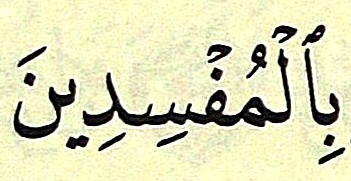 بِٱلۡمُفۡسِدِينَ